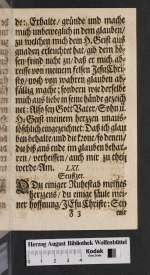 de:. Erhalte / gründe und mache
mich unbeweglich in dem glauben /
zu welchem mich dein H. Geist aus
gnaden erleuchtet hat / gib dem bö-
sen feind nicht zu / daß er mich ab-
reisse von meinem felsen Jesu Chri-
sto / noch von wahren glauben ab-
fällig mache; sondern wie derselbe
mich aus liebe in seine hände gezeich-
net: Also sey Gott Vater / Sohn u.
H. Geist meinem hertzen unaus-
löschlich eingezeichnet: Daß ich glau-
ben behalte und die krone
die biß ans ende im glauben behar-
ren / verheissen / auch mir zu theil
werde. Am. LXI.
Seufzer.
O Du einiger Ruhestab meines
hertzens / du einige säule mei-
ner hoffnung / JEsu Christe: Sey
F 3
Herzog August Bibliothek Wolfenbüttel
Kodak